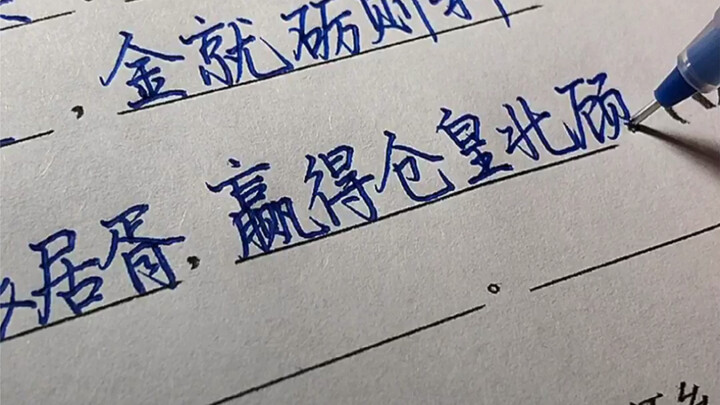 ,金就砺则
居胥,赢得仓皇北顾
。